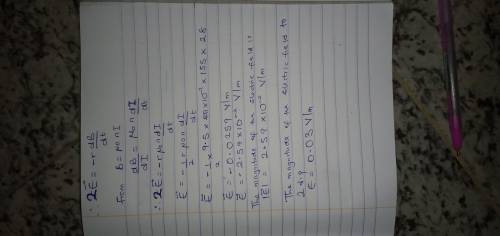 ∴ 2E = -r dB/dt
From B = μ0nI
dB/dI = μ0n dI/dt
∴ 2E = -rμ0n dI/dt
E = -1/2 rμ0n dI/dt
E = -1/2 × 9.5 × × 155 × 28
E = -0.0259 V/m
E = -2.59 × 10⁻² V/m
The magnitude of the electric field is
|E| = 2.59 × 10⁻² V/m
The magnitude of the electric field to
2 d.p
E = 0.03 V/m